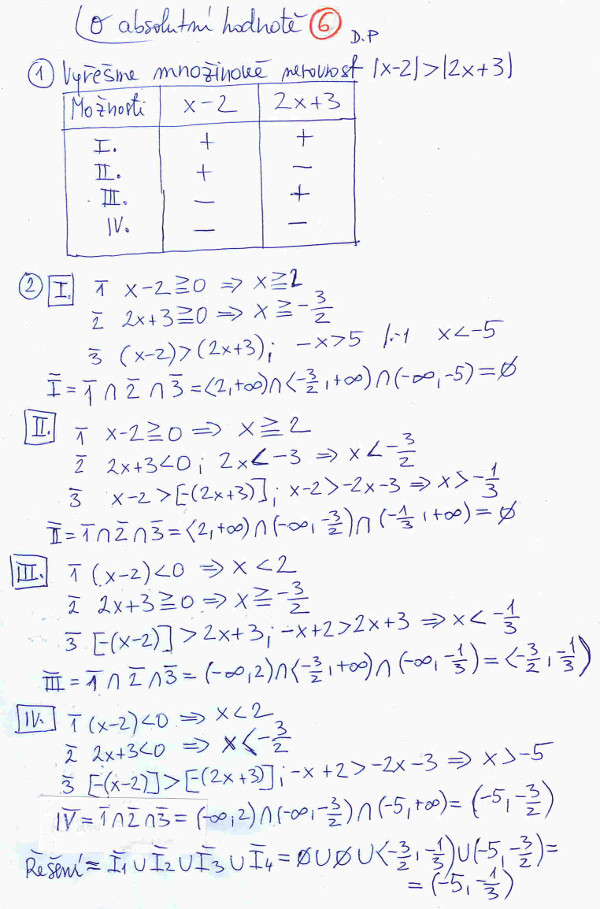 O absolutní hodnotě ⑥ D.P
① Vyřešme množinově nerovnost |x-2|>|2x+3|
Možnosti x-2 2x+3
I. + +
II. + -
III. - +
IV. - -
② I. 1̄ x-2≧0 ⇒ x≧2
2̄ 2x+3≧0 ⇒ x≧-3/2
3̄ (x-2)>(2x+3); -x>5 /·-1 x<-5
Ī=1̄∩2̄∩3̄=⟨2,+∞)∩⟨-3/2,+∞)∩(-∞,-5)=∅
II. 1̄ x-2≧0 ⇒ x≧2
2̄ 2x+3<0; 2x<-3 ⇒ x<-3/2
3̄ x-2>[-(2x+3)]; x-2>-2x-3 ⇒ x>-1/3
I̅I̅=1̄∩2̄∩3̄=⟨2,+∞)∩(-∞,-3/2)∩(-1/3,+∞)=∅
III. 1̄ (x-2)<0 ⇒ x<2
2̄ 2x+3≧0 ⇒ x≧-3/2
3̄ [-(x-2)]>2x+3; -x+2>2x+3 ⇒ x<-1/3
I̅I̅I̅=1̄∩2̄∩3̄=(-∞,2)∩⟨-3/2,+∞)∩(-∞,-1/3)=⟨-3/2,-1/3)
IV. 1̄ (x-2)<0 ⇒ x<2
2̄ 2x+3<0 ⇒ x<-3/2
3̄ [-(x-2)]>[-(2x+3)]; -x+2>-2x-3 ⇒ x>-5
I̅V̅=1̄∩2̄∩3̄=(-∞,2)∩(-∞,-3/2)∩(-5,+∞)=(-5,-3/2)
Řešení=Ī₁∪Ī₂∪Ī₃∪Ī₄=∅∪∅∪⟨-3/2,-1/3)∪(-5,-3/2)=
=(-5,-1/3)